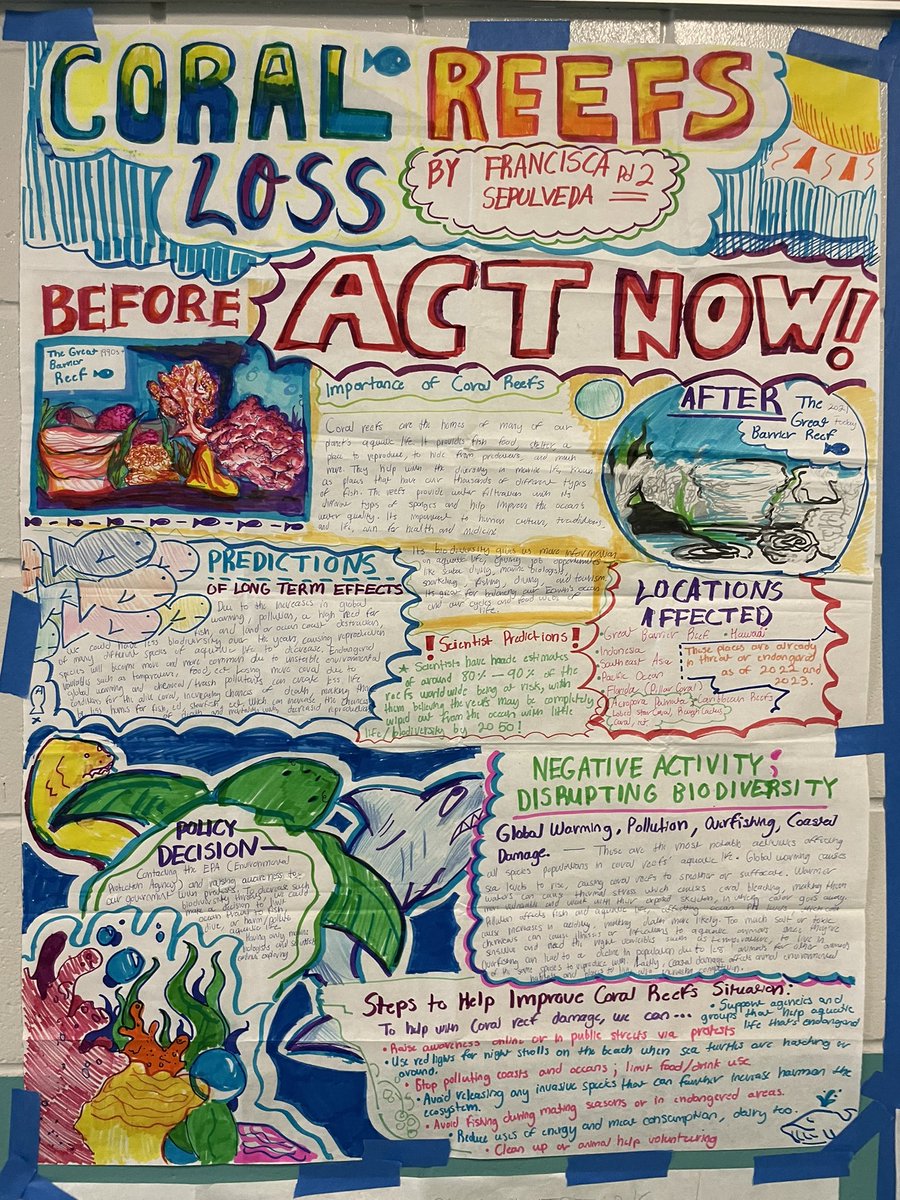 CORAL REEFS
LOSS
BY FRANCISCA Pd 2
SEPULVEDA
ACT NOW!
BEFORE
The Great 1990s
Barrier
Reef
Importance of Coral Reefs
Coral reefs are the homes of many of our
planet's aquatic life. It provides fish food, shelter, a
place to reproduce, to hide from predators, and much
more. They help with the diversity in marine life, known
as places that have over thousands of different types
of fish. The reefs provide water filtration with its
different type of sponges and help improve the ocean's
water quality. It's important to human culture, traditions,
and life, even for health and medicine
Its biodiversity gives us more information
on aquatic life, giving job opportunities
like scuba diving, marine biology,
snorkeling, fishing, diving, and tourism.
Its great for balancing our Earth's ocean
and our cycles and food webs of
life.
AFTER
The 2021 today
Great
Barrier Reef
PREDICTIONS
OF LONG TERM EFFECTS
Due to the increases in global
warming, pollution, a high need for
fish and land or ocean coast destruction,
We could have less biodiversity over the years causing reproduction
of many different species of aquatic life to decrease. Endangered
species will become more and more common due to unstable environmental
variables such as temperature, food, ect. The more coral due to
global warming and chemical/trash pollutants can create less life
conditions for the alive coral, increasing chances of death making
less homes for fish, starfish, ect. Which can increase the chances
of death and mortality with decreased reproduction
! Scientist Predictions !
Scientists have made estimates
of around 80% — 90% of the
reefs worldwide being at risk, with
them believing the reefs may be completely
wiped out from the ocean with little
life/biodiversity by 2050!
LOCATIONS
AFFECTED
• Great Barrier Reef • Hawaii
• Indonesia
Southeast Asia
• Pacific Ocean
• Florida (Pillar Coral)
• Caribbean Reefs
(Acropora Palmata
Lobed star Coral, Rough Cactus
Coral, ect.)
These places are already
in threat or endangered
as of 2021 and
2023.
POLICY
DECISION—
Contacting the EPA (Environmental
Protection Agency) and raising awareness to
our government with protests. To decrease such
biodiversity threats, we could
make the decision to limit
ocean travel to fish
live, or harm/pollute
aquatic life.
Having only marine
biologists and scientists
exploring
NEGATIVE ACTIVITY;
DISRUPTING BIODIVERSITY
Global Warming, Pollution, Overfishing, Coastal
Damage. — These are the most notable activities affecting
all species populations in coral reefs' aquatic life. Global warming causes
sea levels to rise, causing coral reefs to smother or suffocate. Warmer
waters can cause thermal stress which causes coral bleaching, making them
more vulnerable and weak with their exposed skeleton, in which color goes away.
Pollution affects fish and aquatic
increases in acidity, making death more likely. Too much salt or toxic
chemicals can cause illness or infections to aquatic animals since they're
sensitive and need the right variables such as temperature, to live in.
Overfishing can lead to a decline in population due to less animals for other animals
of the same species to reproduce with. Lastly, coastal damage affects animal environment
habitats and places to live
Steps to Help Improve Coral Reefs Situation:
To help with Coral reef damage, we can...
• Support agencies and
groups that help aquatic
life that's endangered
• Raise awareness online or in public streets via protests
• Use red lights for night strolls on the beach when sea turtles are hatching or
around.
• Stop polluting coasts and oceans; limit food/drink use
• Avoid releasing any invasive species that can further increase harm on the
ecosystem.
• Avoid fishing during mating seasons or in endangered areas.
• Reduce uses of energy and meat consumption, dairy too.
• Clean up or animal help volunteering